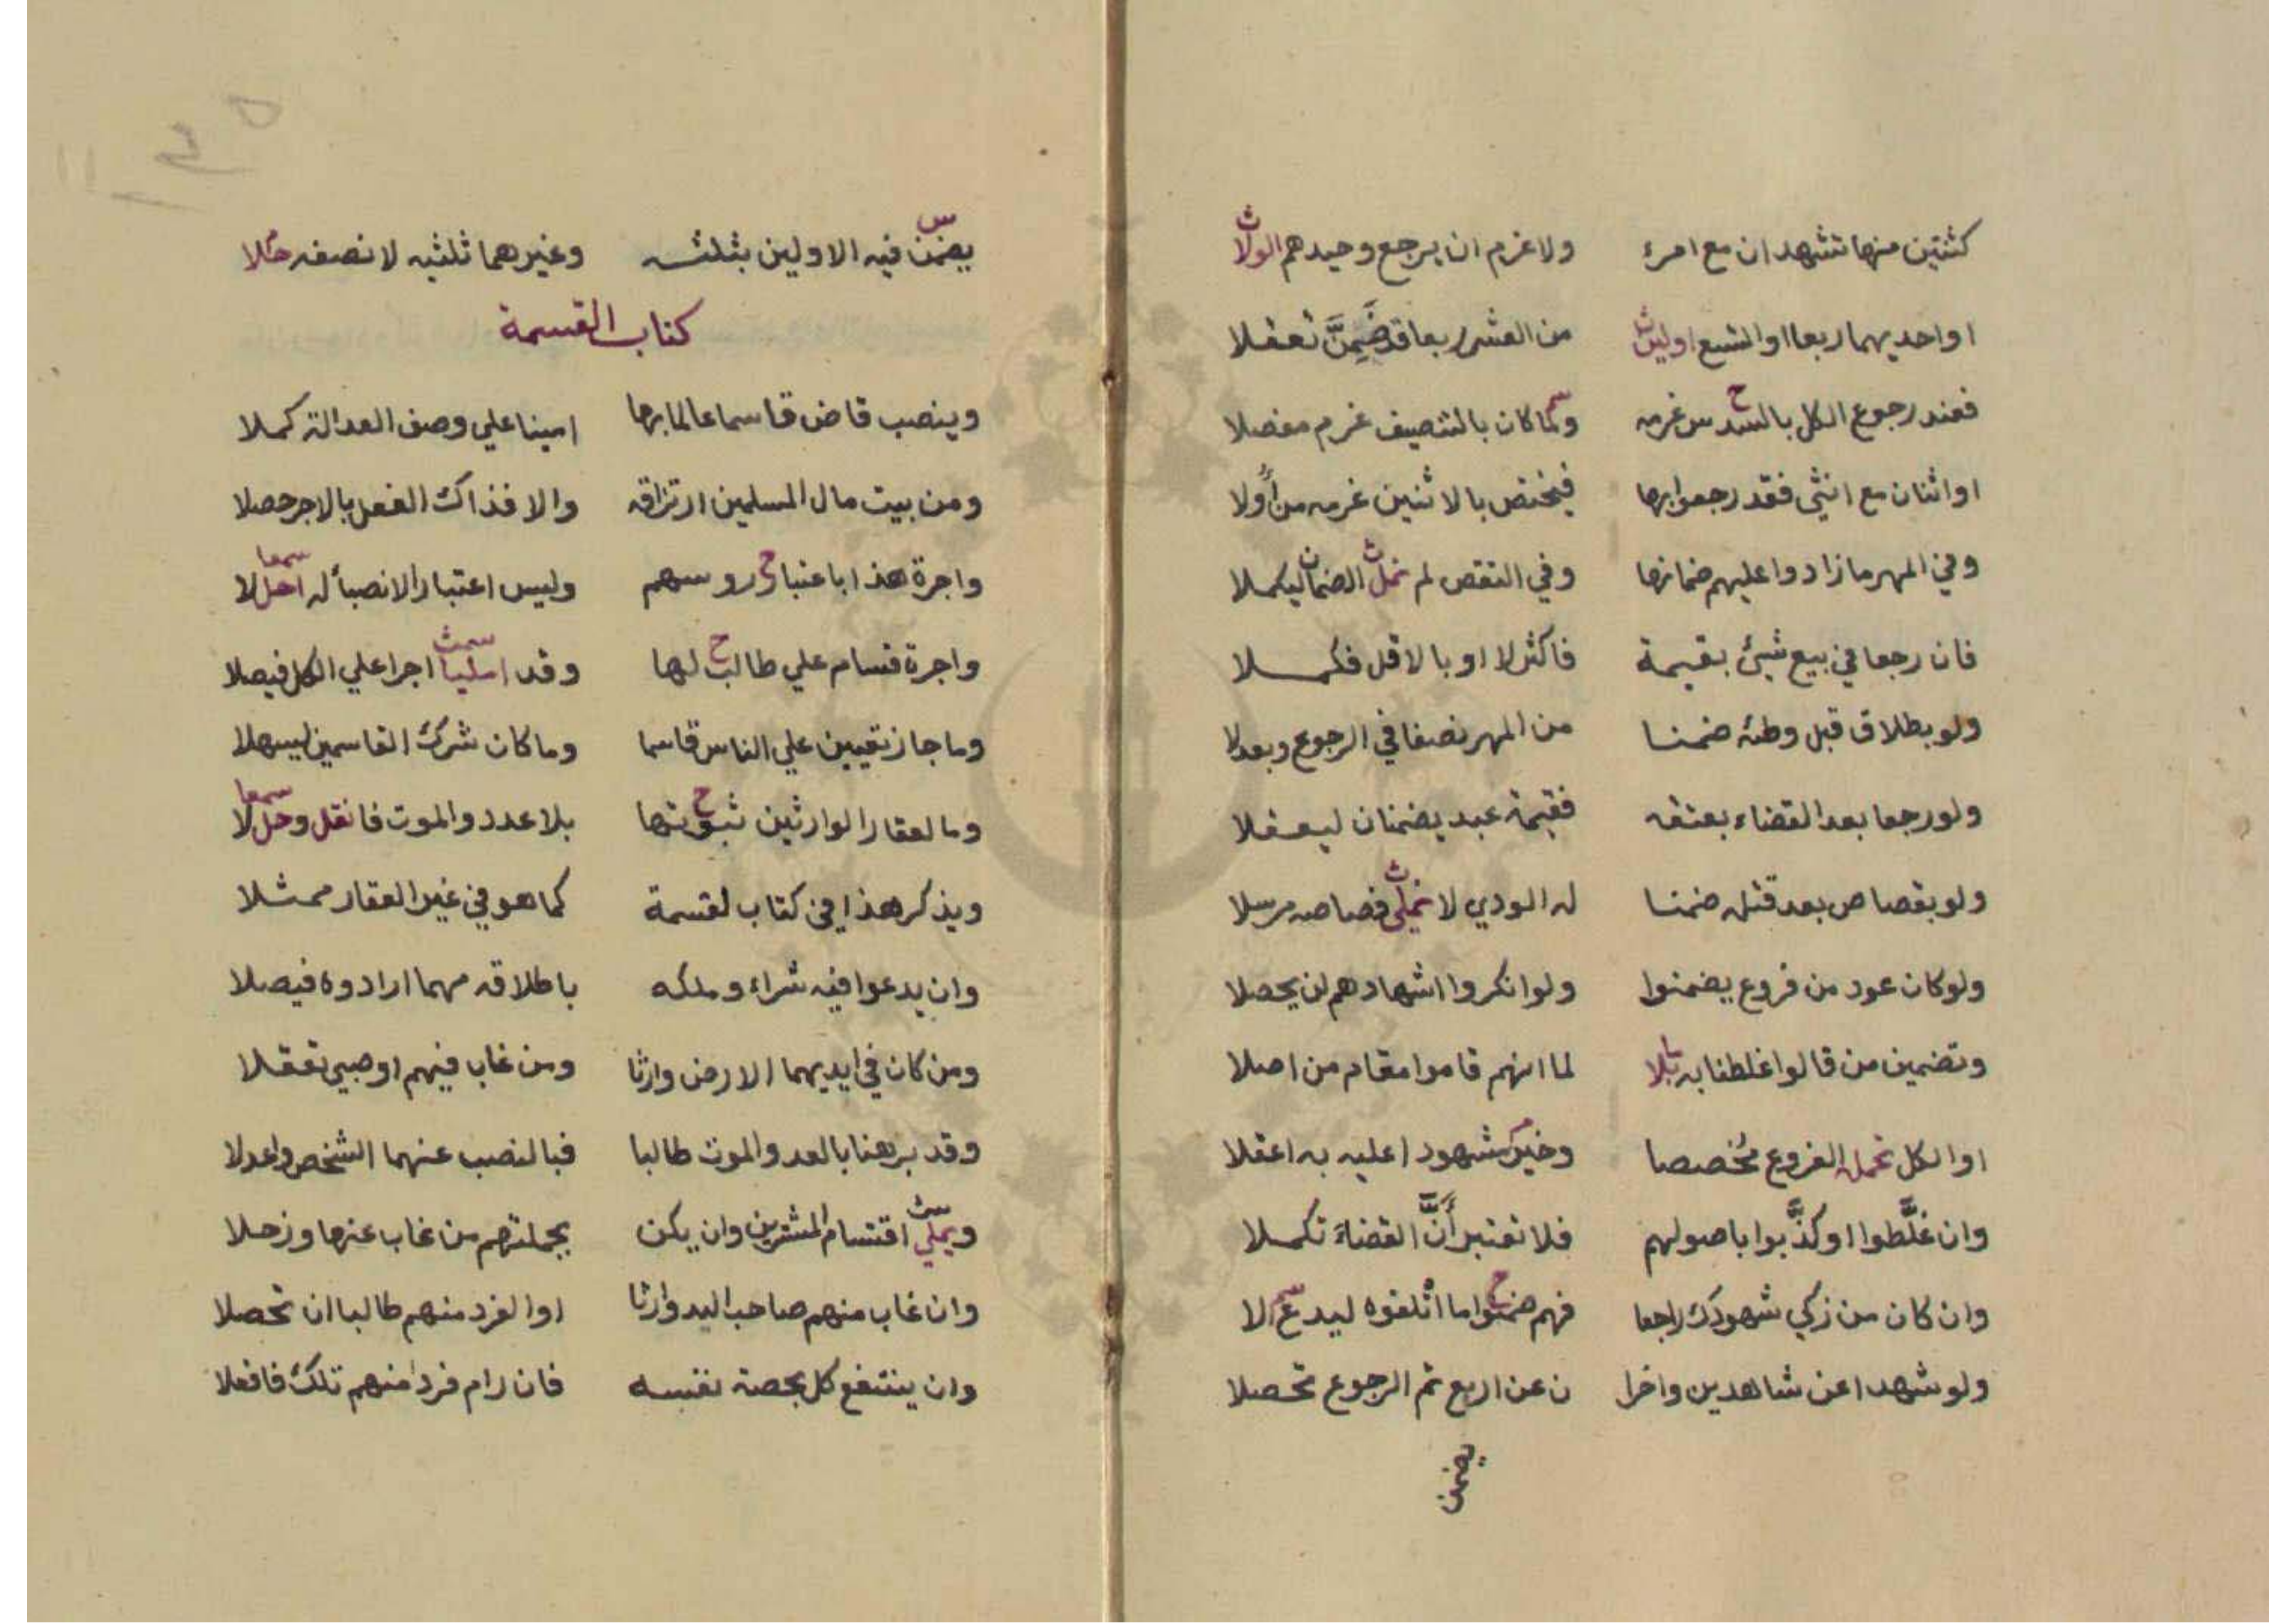 كثنتين منها تشهدان مع امرء ولا غرم ان يرجع وحيدهم الولا
او احديهما ربعا او التسع اولين من العشر ربعا قد ضمن تعقلا
فعند رجوع الكل بالسدس غرمه وكما كان بالتنصيف غرم مفصلا
او اثنان مع انثي فقد رجعوا بها فيختص بالاثنين غرمه من اولا
وفي المهر ما زادوا عليهم ضمانها وفي النقص لم نمل الضمان ليكملا
فان رجعا في بيع شيئ بقيمة فاكثر لا او بالاقل فكملا
ولو بطلاق قبل وطئه ضمنا من المهر نصفا في الرجوع وبعد لا
ولو رجعا بعد القضاء بعتقه فقيمة عبد يضمنان ليعقلا
ولو بقصاص بعد قتله ضمنا له الودي لا نملي قصاصه مرسلا
ولو كان عود من فروع يضمنوا ولو انكروا اشهادهم لن يحصلا
وتضمين من قالوا غلطنا به بلا لما انهم قاموا مقام من اصلا
او الكل تحمل الفروع مخصصا وخير شهودا عليه به اعقلا
وان غلَّطوا او كذَّبوا باصولهم فلا تعتبر أنَّ القضاء تكملا
وان كان من زكي شهودك راجعا فهم ضمنوا ما اتلفوه ليدع لا
ولو شهدا عن شاهدين واخرا ن عن اربع ثم الرجوع تحصلا
يضمن
يضمن فيه الاولين بثلثه وغيرهما ثلثيه لا نصفه حلا
كتاب القسمة
وينصب قاض قاسما عالما بها امينا علي وصف العدالة كملا
ومن بيت مال المسلمين ارتزاقه والا فذاك الفعل بالاجر حصلا
واجرة هذا باعتبار روسهم وليس اعتبار الانصباء له احل لا
واجرة قسام علي طالب لها وقد امليا اجرا علي الكل فيصلا
وما جاز تعيين علي الناس قاسما وما كان شرك القاسمين ليسهلا
وما لعقار الوارثين ثبوتها بلا عدد والموت فانقل وحل لا
ويذكر هذا في كتاب لقسمة كما هو في غير العقار ممثلا
وان يدعوا فيه شراء وملكه باطلاقه مهما ارادوه فيصلا
ومن كان في ايديهما الارض وارثا ومن غاب فيهم او صبي تعقلا
وقد برهنا بالعد والموت طالبا فبالنصب عنهما الشخص واعدلا
ويملي اقتسام المشترين وان يكن بجملتهم من غاب عنها وزحلا
وان غاب منهم صاحب اليد وارثا او الفرد منهم طالبا ان تحصلا
وان ينتفع كل بحصة نفسه فان رام فرد منهم تلك فافعلا